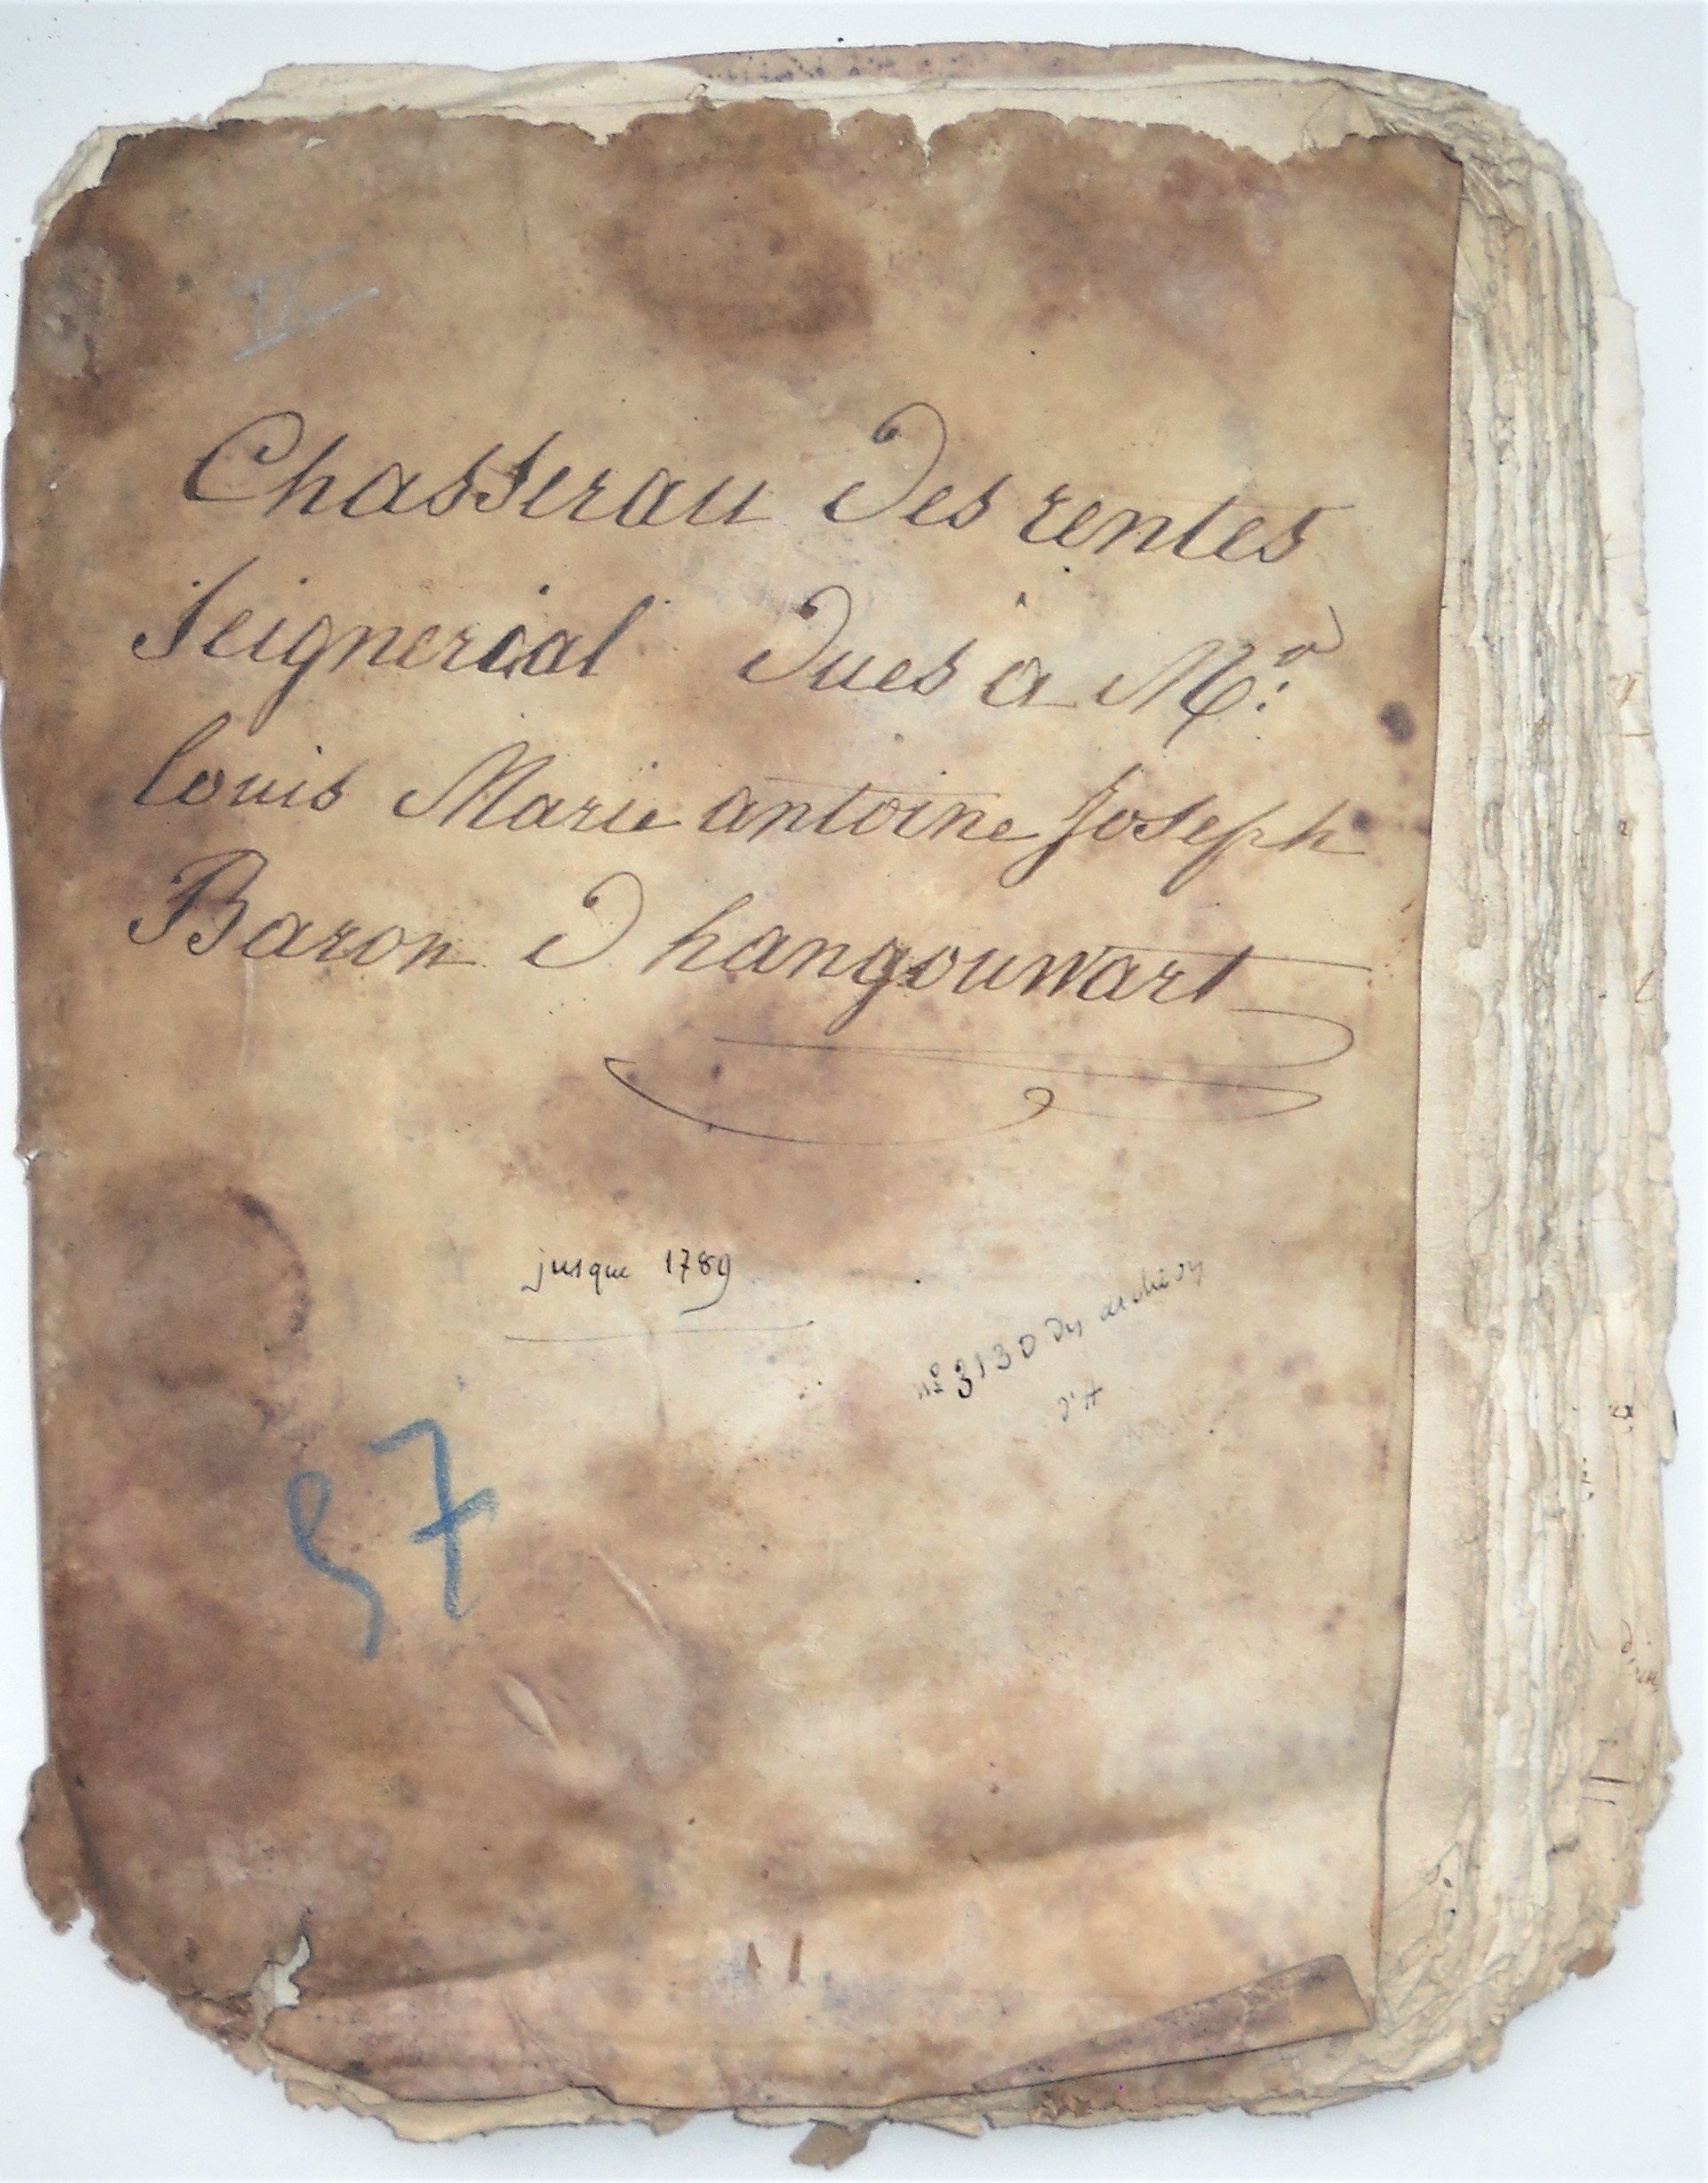 IX
Chasserau des rentes
Seignerial dues a Mr:
louis Marie antoine Joseph
Baron D hangouwart
jusque 1789
nº 3130 des archives
d'H
57